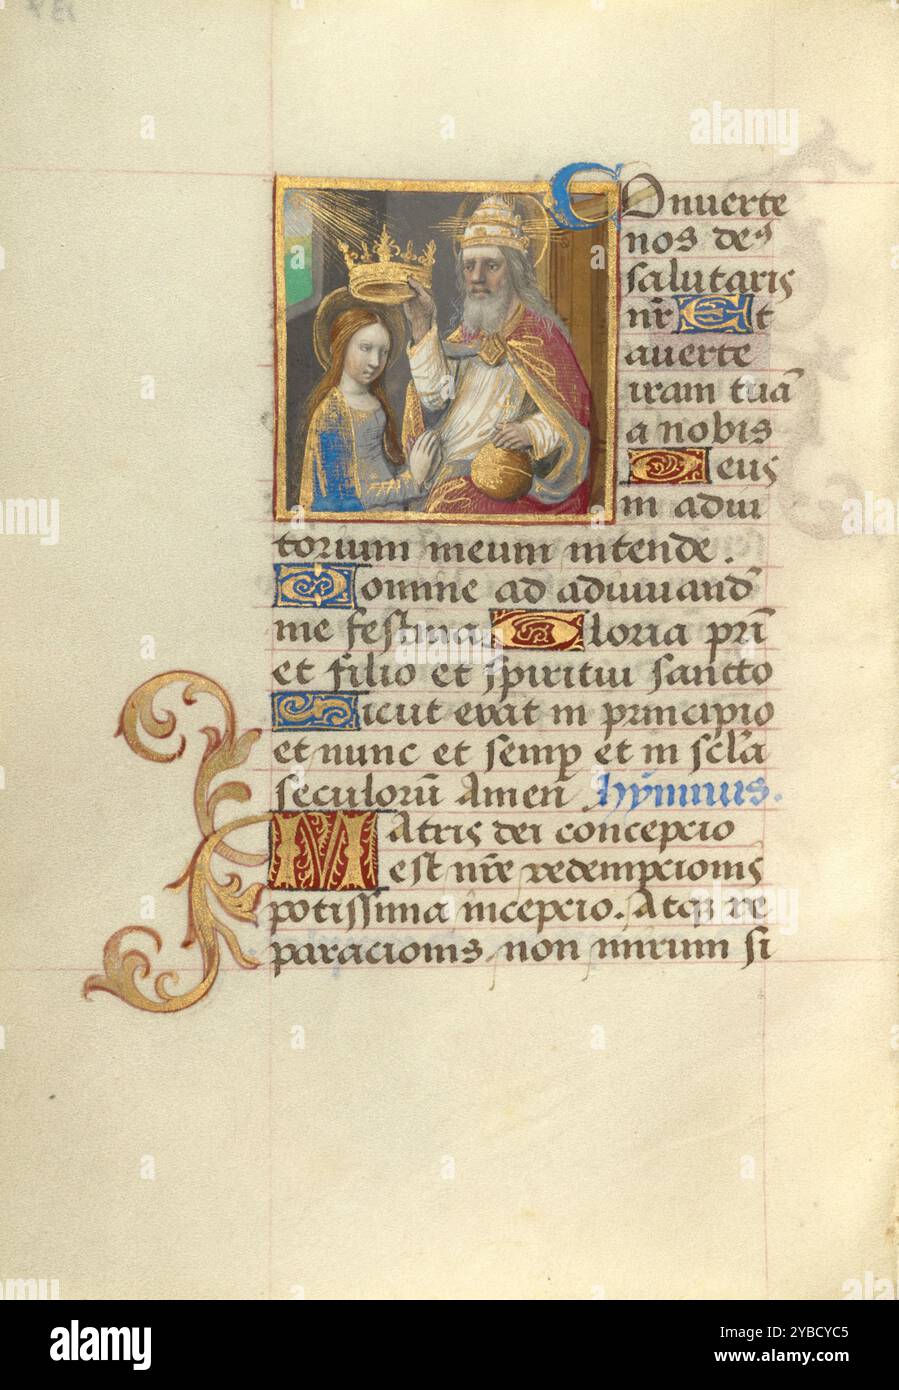 Conuerte
nos des
salutaris
nr̄ Et
auerte
iram tuā
a nobis
Deus
in adiu
torium meum intende.
Domine ad adiuuand
me festina. Gloria pri̅
et filio et spiritui sancto
Sicut erat in principio
et nunc et semp et in scl̄a
seculorū Amen hýmnus.
Matris dei concepcio
est nr̄e redempcionis
potissima incepcio. Atqꝫ re
paracionis non mirum si
a
alamy
Image ID: 2YBCYC5
www.alamy.com